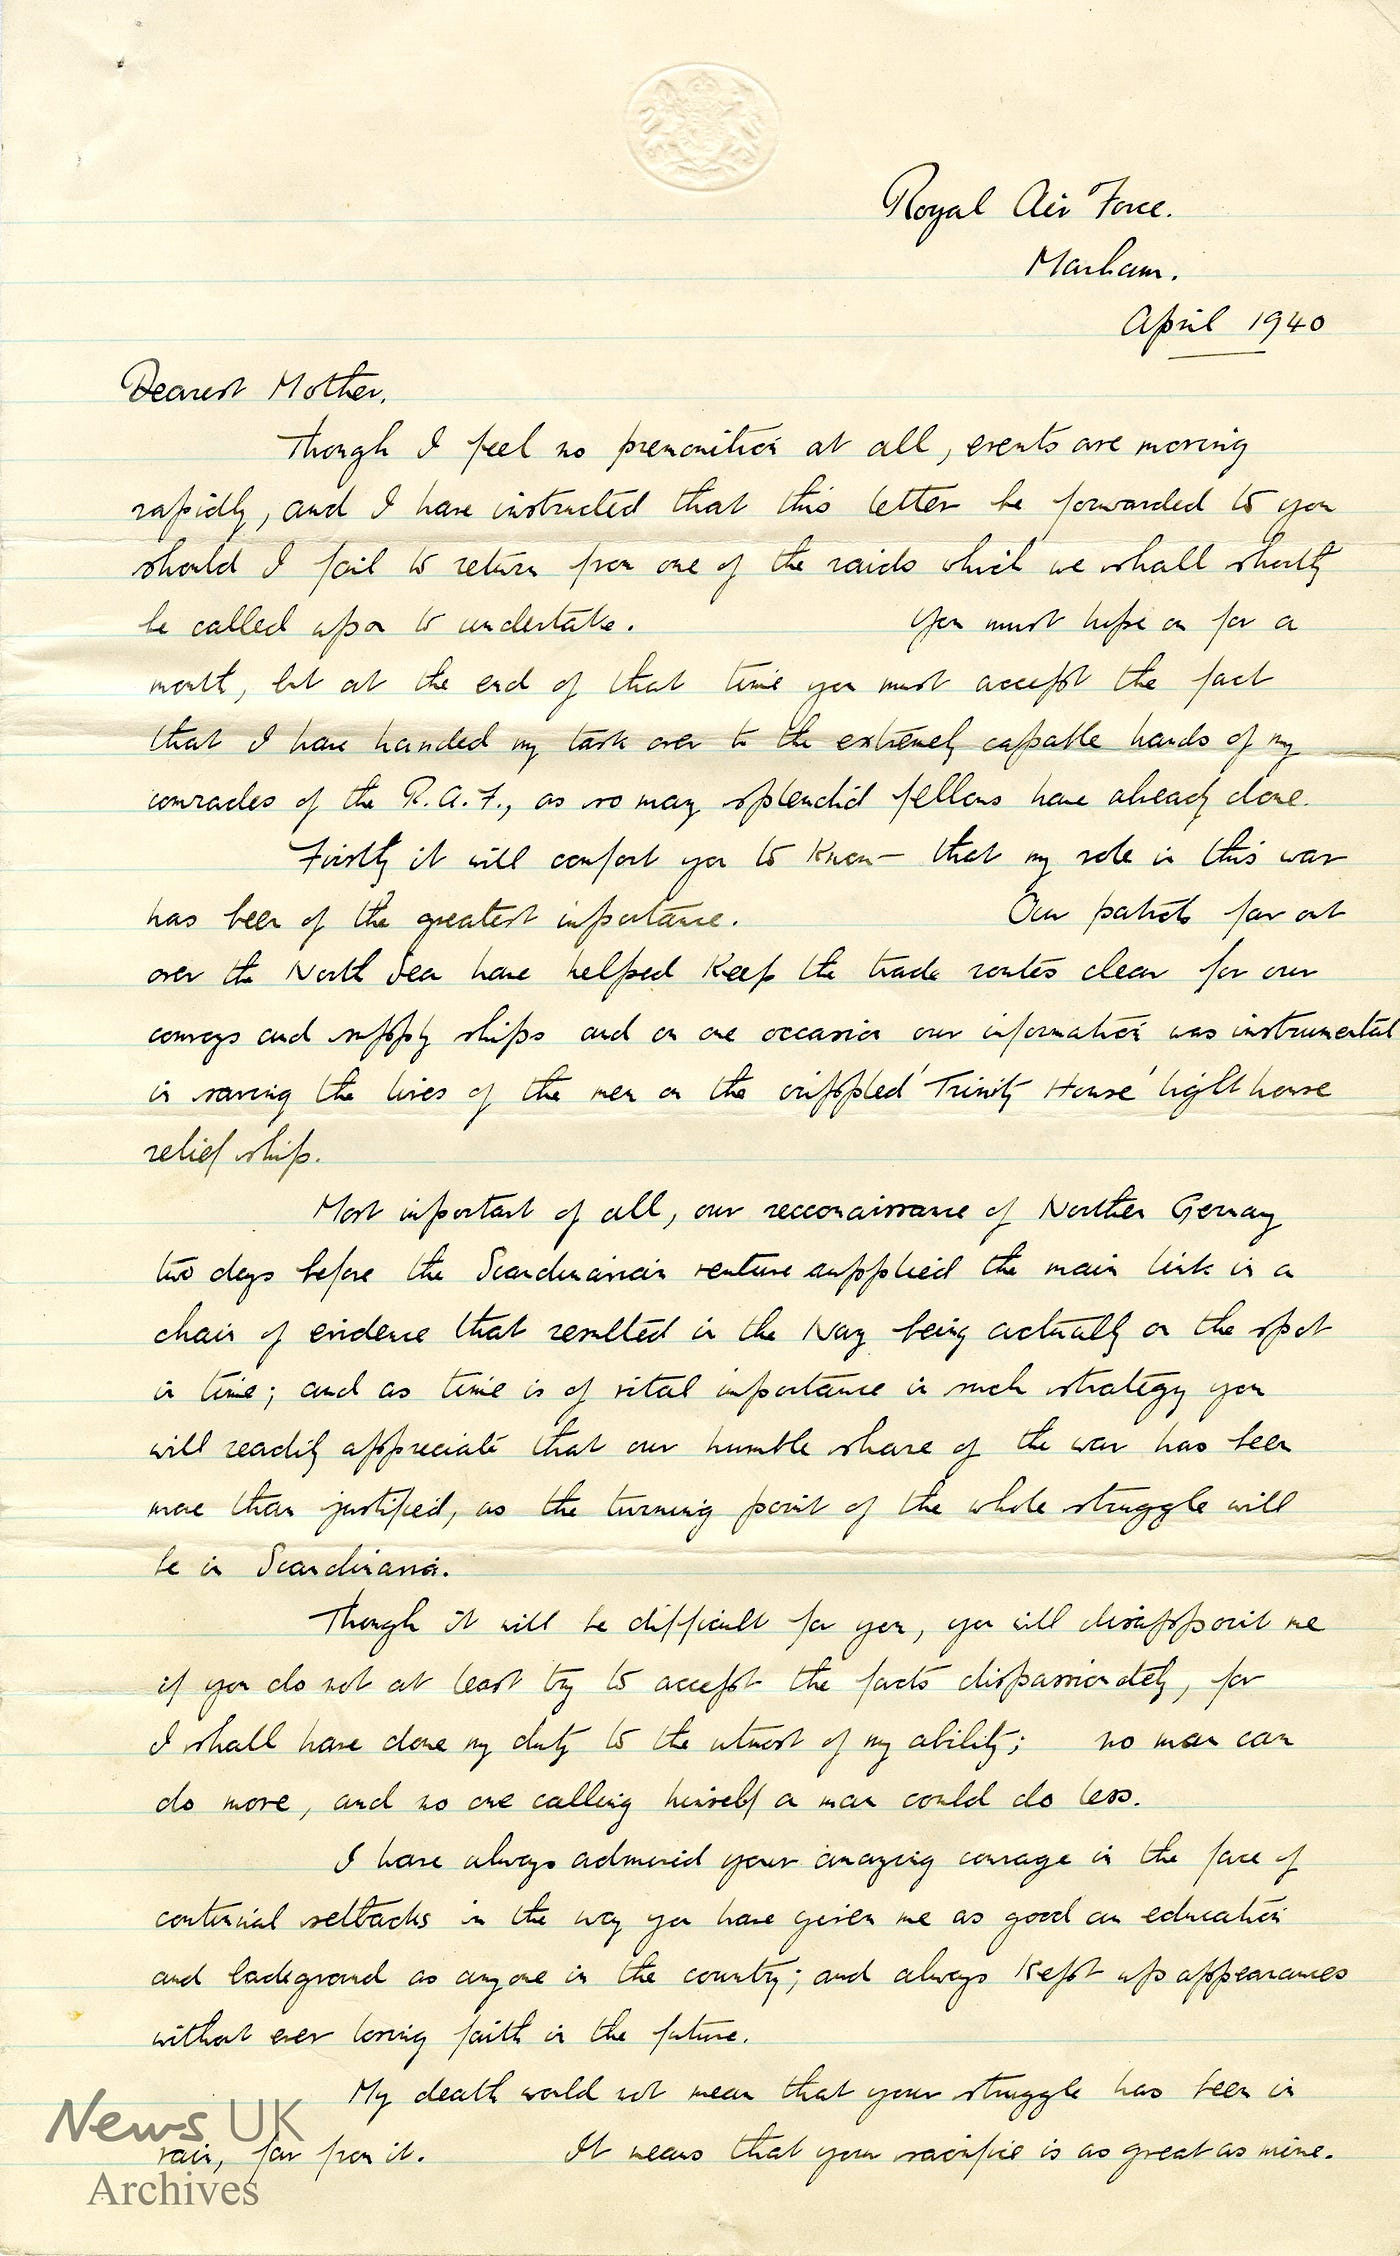 Royal Air Force.
Marham.
April 1940
Dearest Mother,
Though I feel no premonition at all, events are moving
rapidly, and I have instructed that this letter be forwarded to you
should I fail to return from one of the raids which we shall shortly
be called upon to undertake. You must hope on for a
month, but at the end of that time you must accept the fact
that I have handed my task over to the extremely capable hands of my
comrades of the R.A.F., as so many splendid fellows have already done.
Firstly it will comfort you to know that my role in this war
has been of the greatest importance. Our patrols far out
over the North Sea have helped keep the trade routes clear for our
convoys and supply ships and on one occasion our information was instrumental
in saving the lives of the men on the crippled 'Trinity House' lighthouse
relief ship.
Most important of all, our recconaissance of Northern Germany
two days before the Scandinavian venture supplied the main link in a
chain of evidence that resulted in the Navy being actually on the spot
in time; and as time is of vital importance in such strategy you
will readily appreciate that our humble share of the war has been
more than justified, as the turning point of the whole struggle will
be in Scandinavia.
Though it will be difficult for you, you will disappoint me
if you do not at least try to accept the facts dispassionately, for
I shall have done my duty to the utmost of my ability; no man can
do more, and no one calling himself a man could do less.
I have always admired your amazing courage in the face of
continual setbacks in the way you have given me as good an education
and background as anyone in the country; and always kept up appearances
without ever losing faith in the future.
My death would not mean that your struggle has been in
vain, far from it. It means that your sacrifice is as great as mine.
News UK
Archives